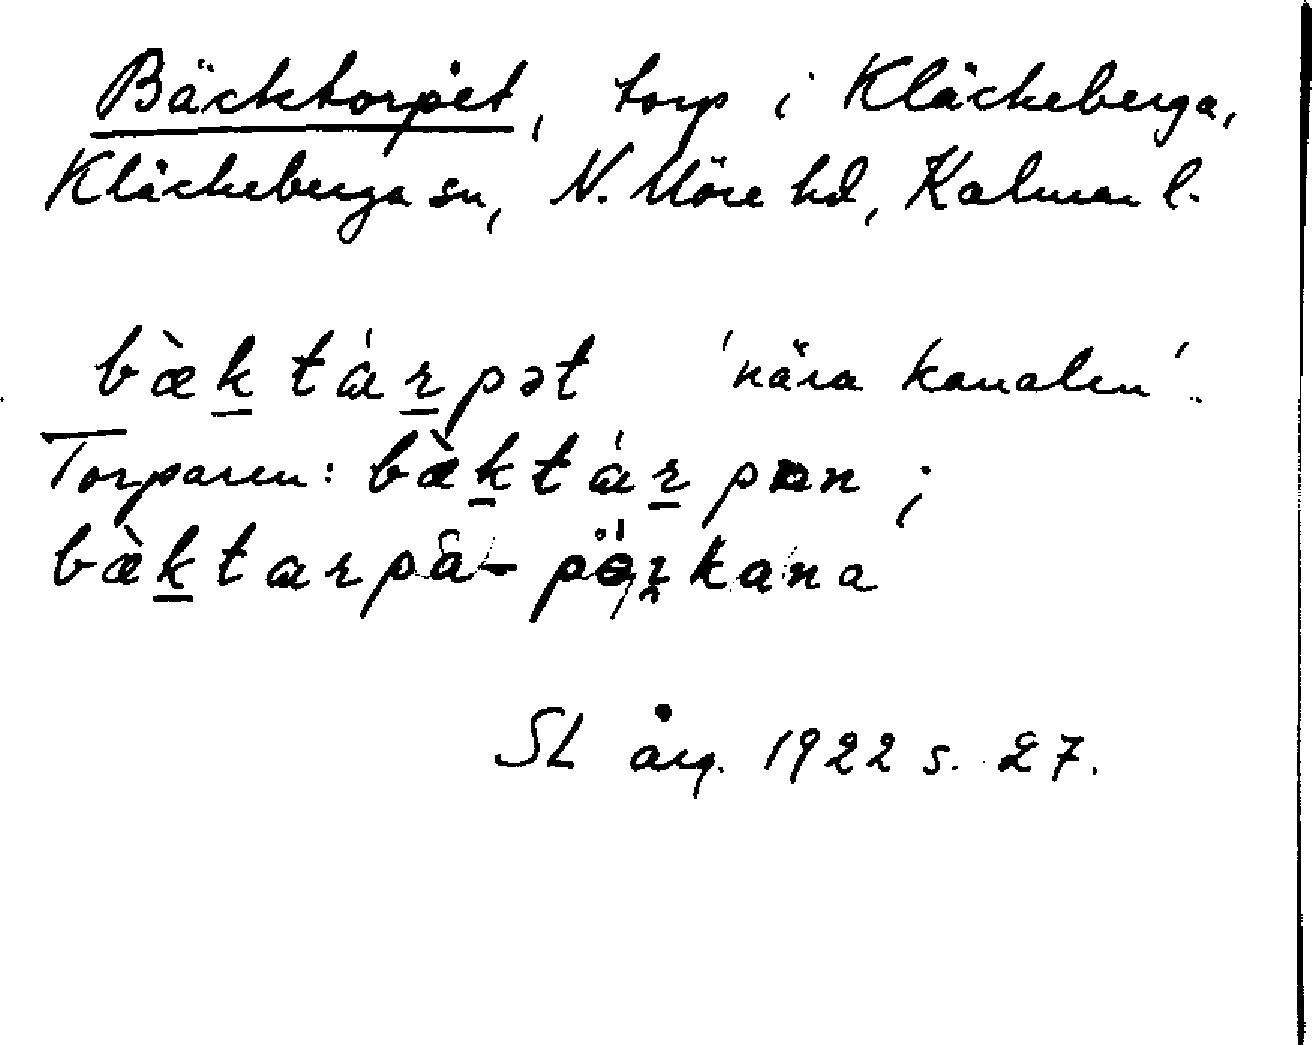 Bäcktorpet, torp i Kläckeberga,
Kläckeberga sn, N. Möre hd, Kalmar l.
bæ̀k̲tár̲pət 'nära kanalen'.
Torparen: bæ̀k̲tár̲pən ;
bæ̀k̲tarpa-
SL årg. 1922 s. 27.